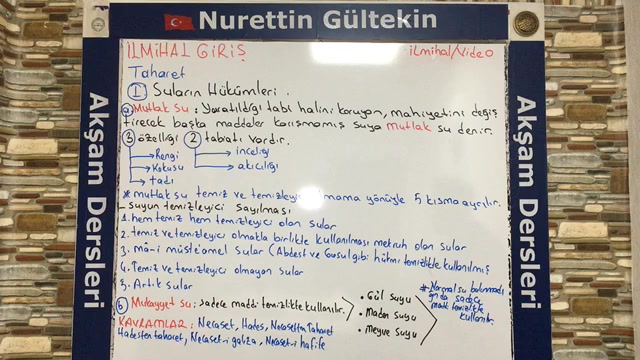 Nurettin Gültekin
Akşam Dersleri
Akşam Dersleri
İLMİHAL GİRİŞ
ilmihal/video
Taharet
1 Suların Hükümleri.
a Mutlak su: Yaratıldığı tabi halini koruyan, mahiyetini değiş
tirecek başka maddeler karışmamış suya mutlak su denir.
3 özelliği 2 tabiatı vardır.
Rengi
Kokusu
tadı
inceliği
akıcılığı
* mutlak su temiz ve temizleyici olmama yönüyle 5 kısma ayrılır.
- suyun temizleyici sayılması
1. hem temiz hem temizleyici olan sular
2. temiz ve temizleyici olmakla birlikte kullanılması mekruh olan sular
3. mâ-i müste'amel sular (Abdest ve Gusul gibi hükmi temizlikte kullanılmış
4. Temiz ve temizleyici olmayan sular
5. Artık sular
b Mukayyet su: sadece maddi temizlikte kullanılır.
• Gül suyu
• Maden suyu
• Meyve suyu
* Normal su bulunmadı
ğında sadece
maddi temizlikte
kullanılır.
KAVRAMLAR: Necaset, Hades, Necasetten Taharet
Hadesten taharet, Necaset-i galiza, Necaset-i hafife